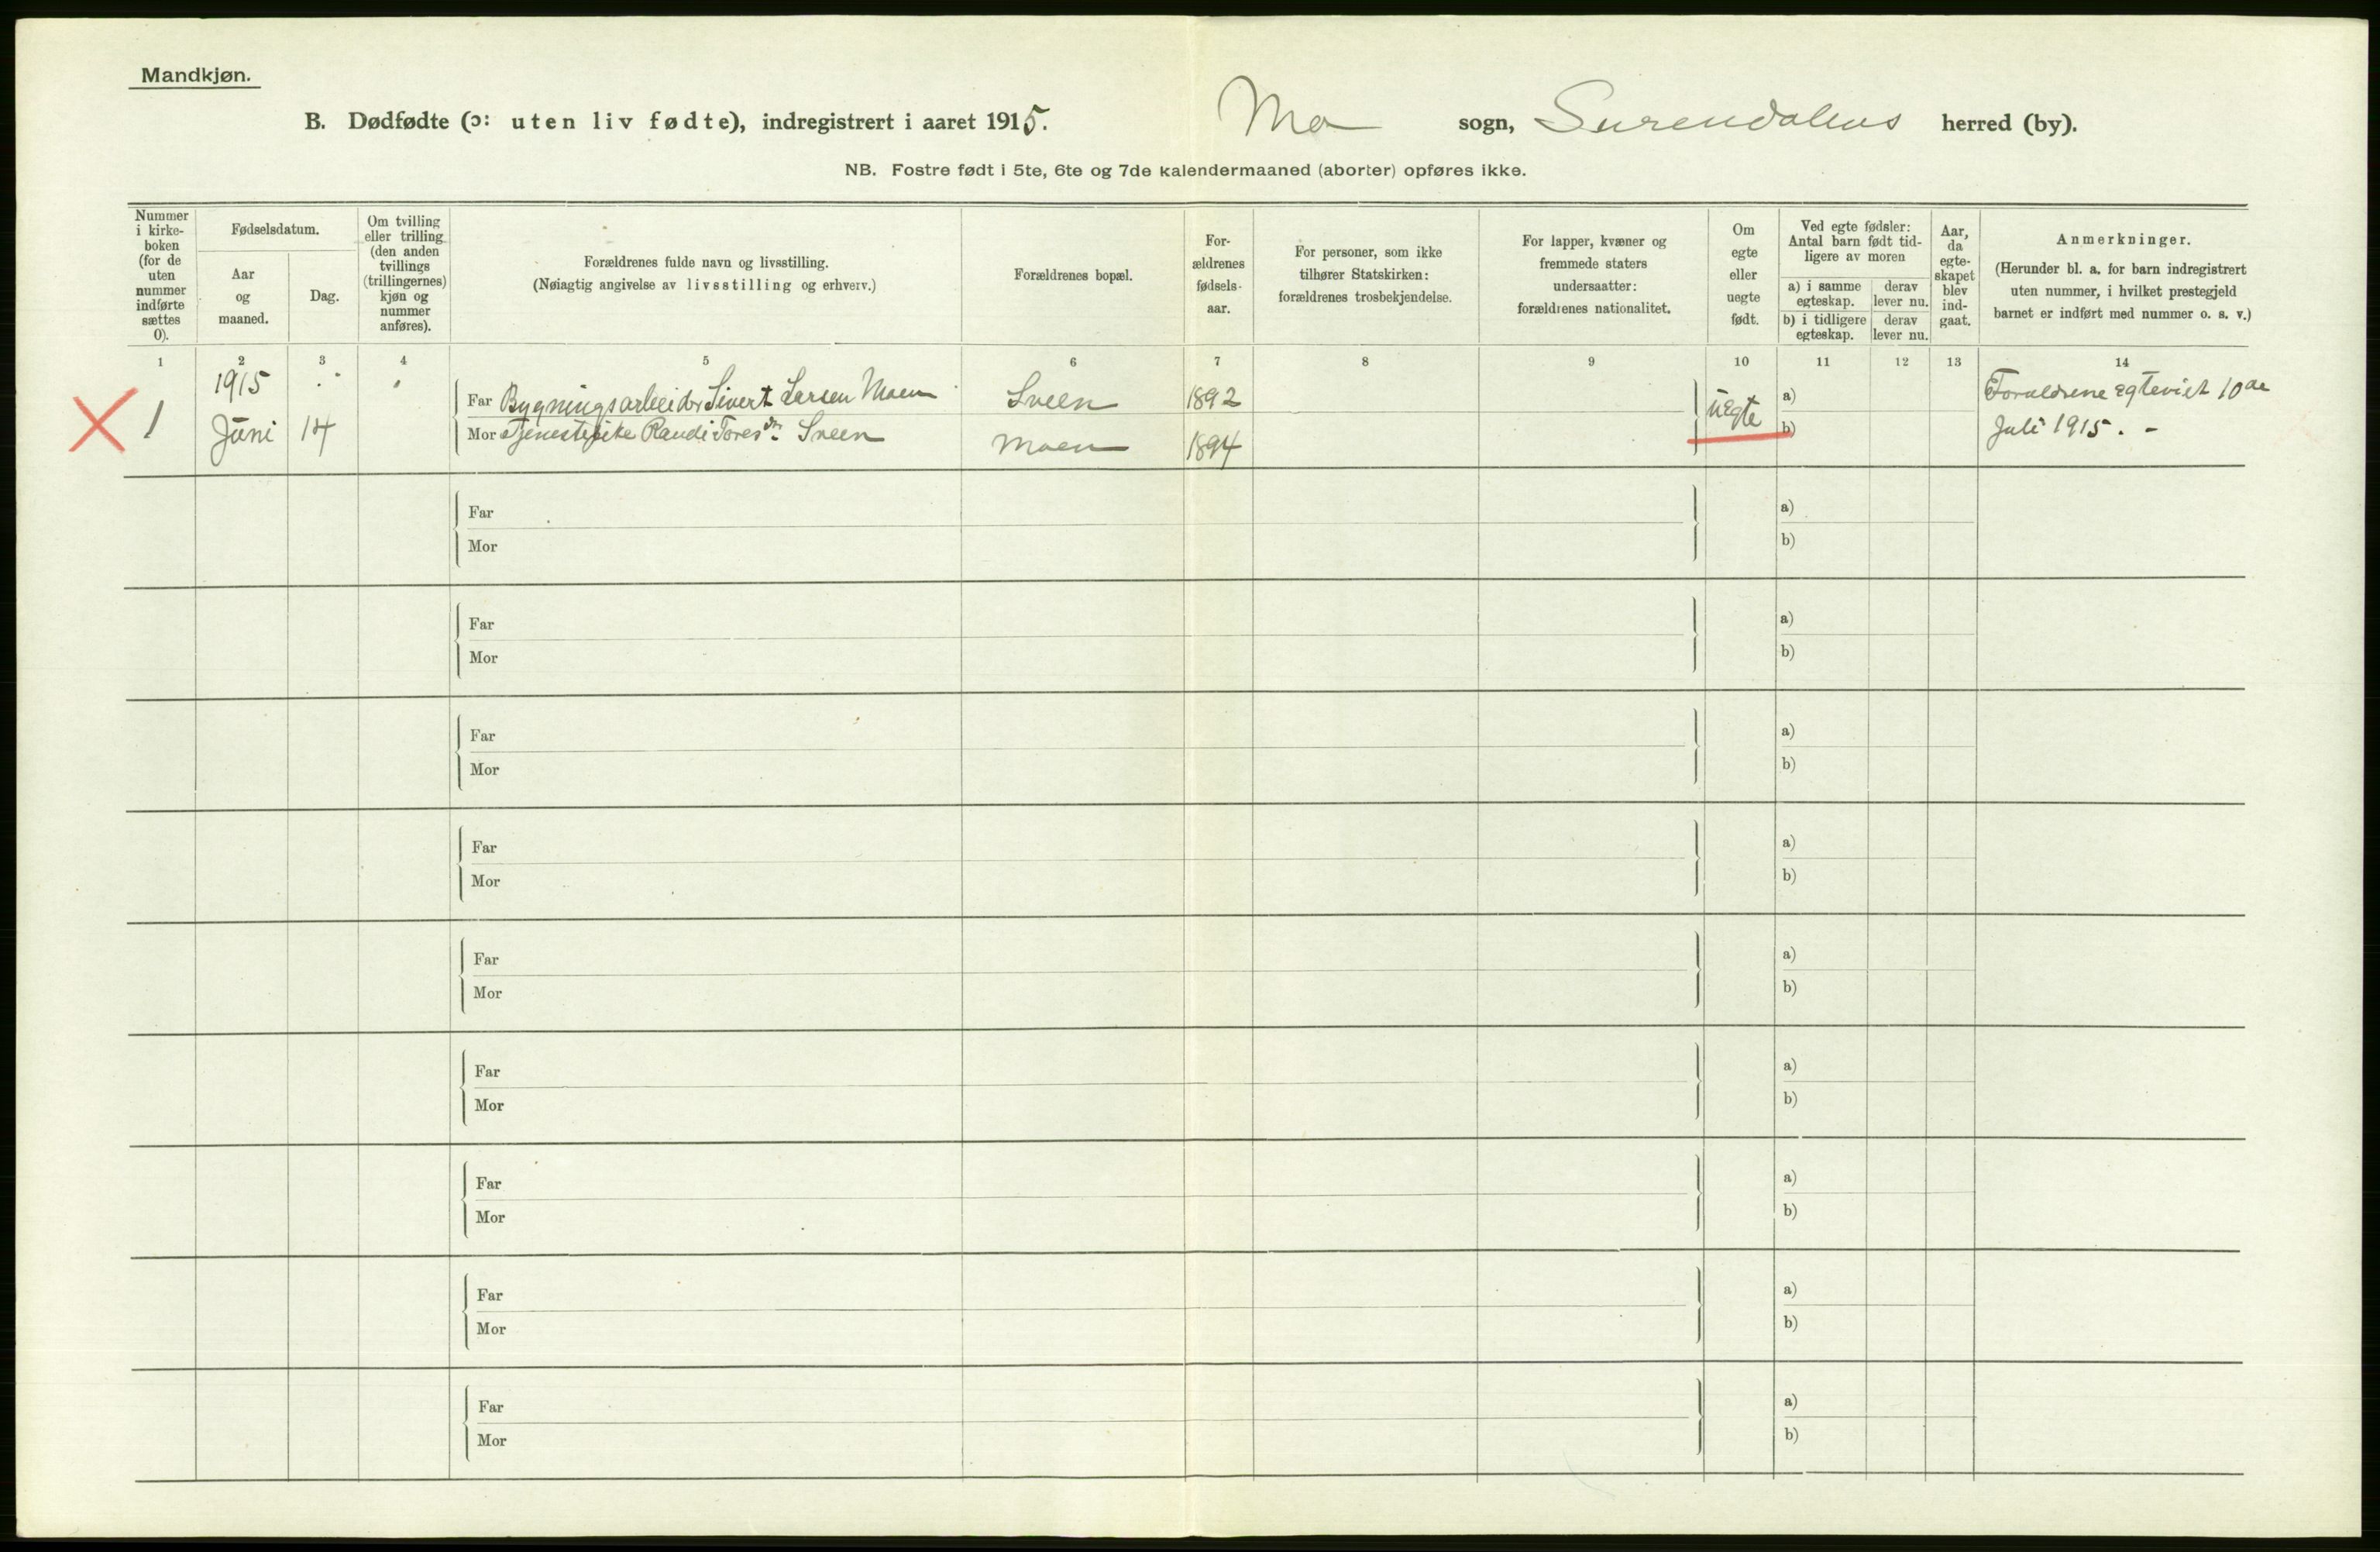 Mandkjøn.
B. Dødfødte (ɔ: uten liv fødte), indregistrert i aaret 1915. Mo sogn, Surendalens herred (by).
NB. Fostre født i 5te, 6te og 7de kalendermaaned (aborter) opføres ikke.
Nummer i kirke-boken (for de uten nummer indførte sættes 0).
Fødselsdatum.
Aar og maaned.
Dag.
Om tvilling eller trilling (den anden tvillings (trillingernes) kjøn og nummer anføres).
Forældrenes fulde navn og livsstilling.
(Nøiagtig angivelse av livsstilling og erhverv.)
Forældrenes bopæl.
For-ældrenes fødsels-aar.
For personer, som ikke tilhører Statskirken: forældrenes trosbekjendelse.
For lapper, kvæner og fremmede staters undersaatter: forældrenes nationalitet.
Om egte eller uegte født.
Ved egte fødsler: Antal barn født tid-ligere av moren
a) i samme egteskap.
derav lever nu.
b) i tidligere egteskap.
derav lever nu.
Aar, da egte-skapet blev ind-gaat.
Anmerkninger.
(Herunder bl. a. for barn indregistrert uten nummer, i hvilket prestegjeld barnet er indført med nummer o. s. v.)
1 2 3 4 5 6 7 8 9 10 11 12 13 14
1915
Far Bygningsarbeider Sivert Larsen Moen Sveen 1892 a) Foraldrene egteviet 10de
1 Juni 14 uegte
Mor Tjenestepike Randi Toresdr. Sveen Moen 1894 b) Juli 1915. -
Far a)
Mor b)
Far a)
Mor b)
Far a)
Mor b)
Far a)
Mor b)
Far a)
Mor b)
Far a)
Mor b)
Far a)
Mor b)
Far a)
Mor b)
Far a)
Mor b)